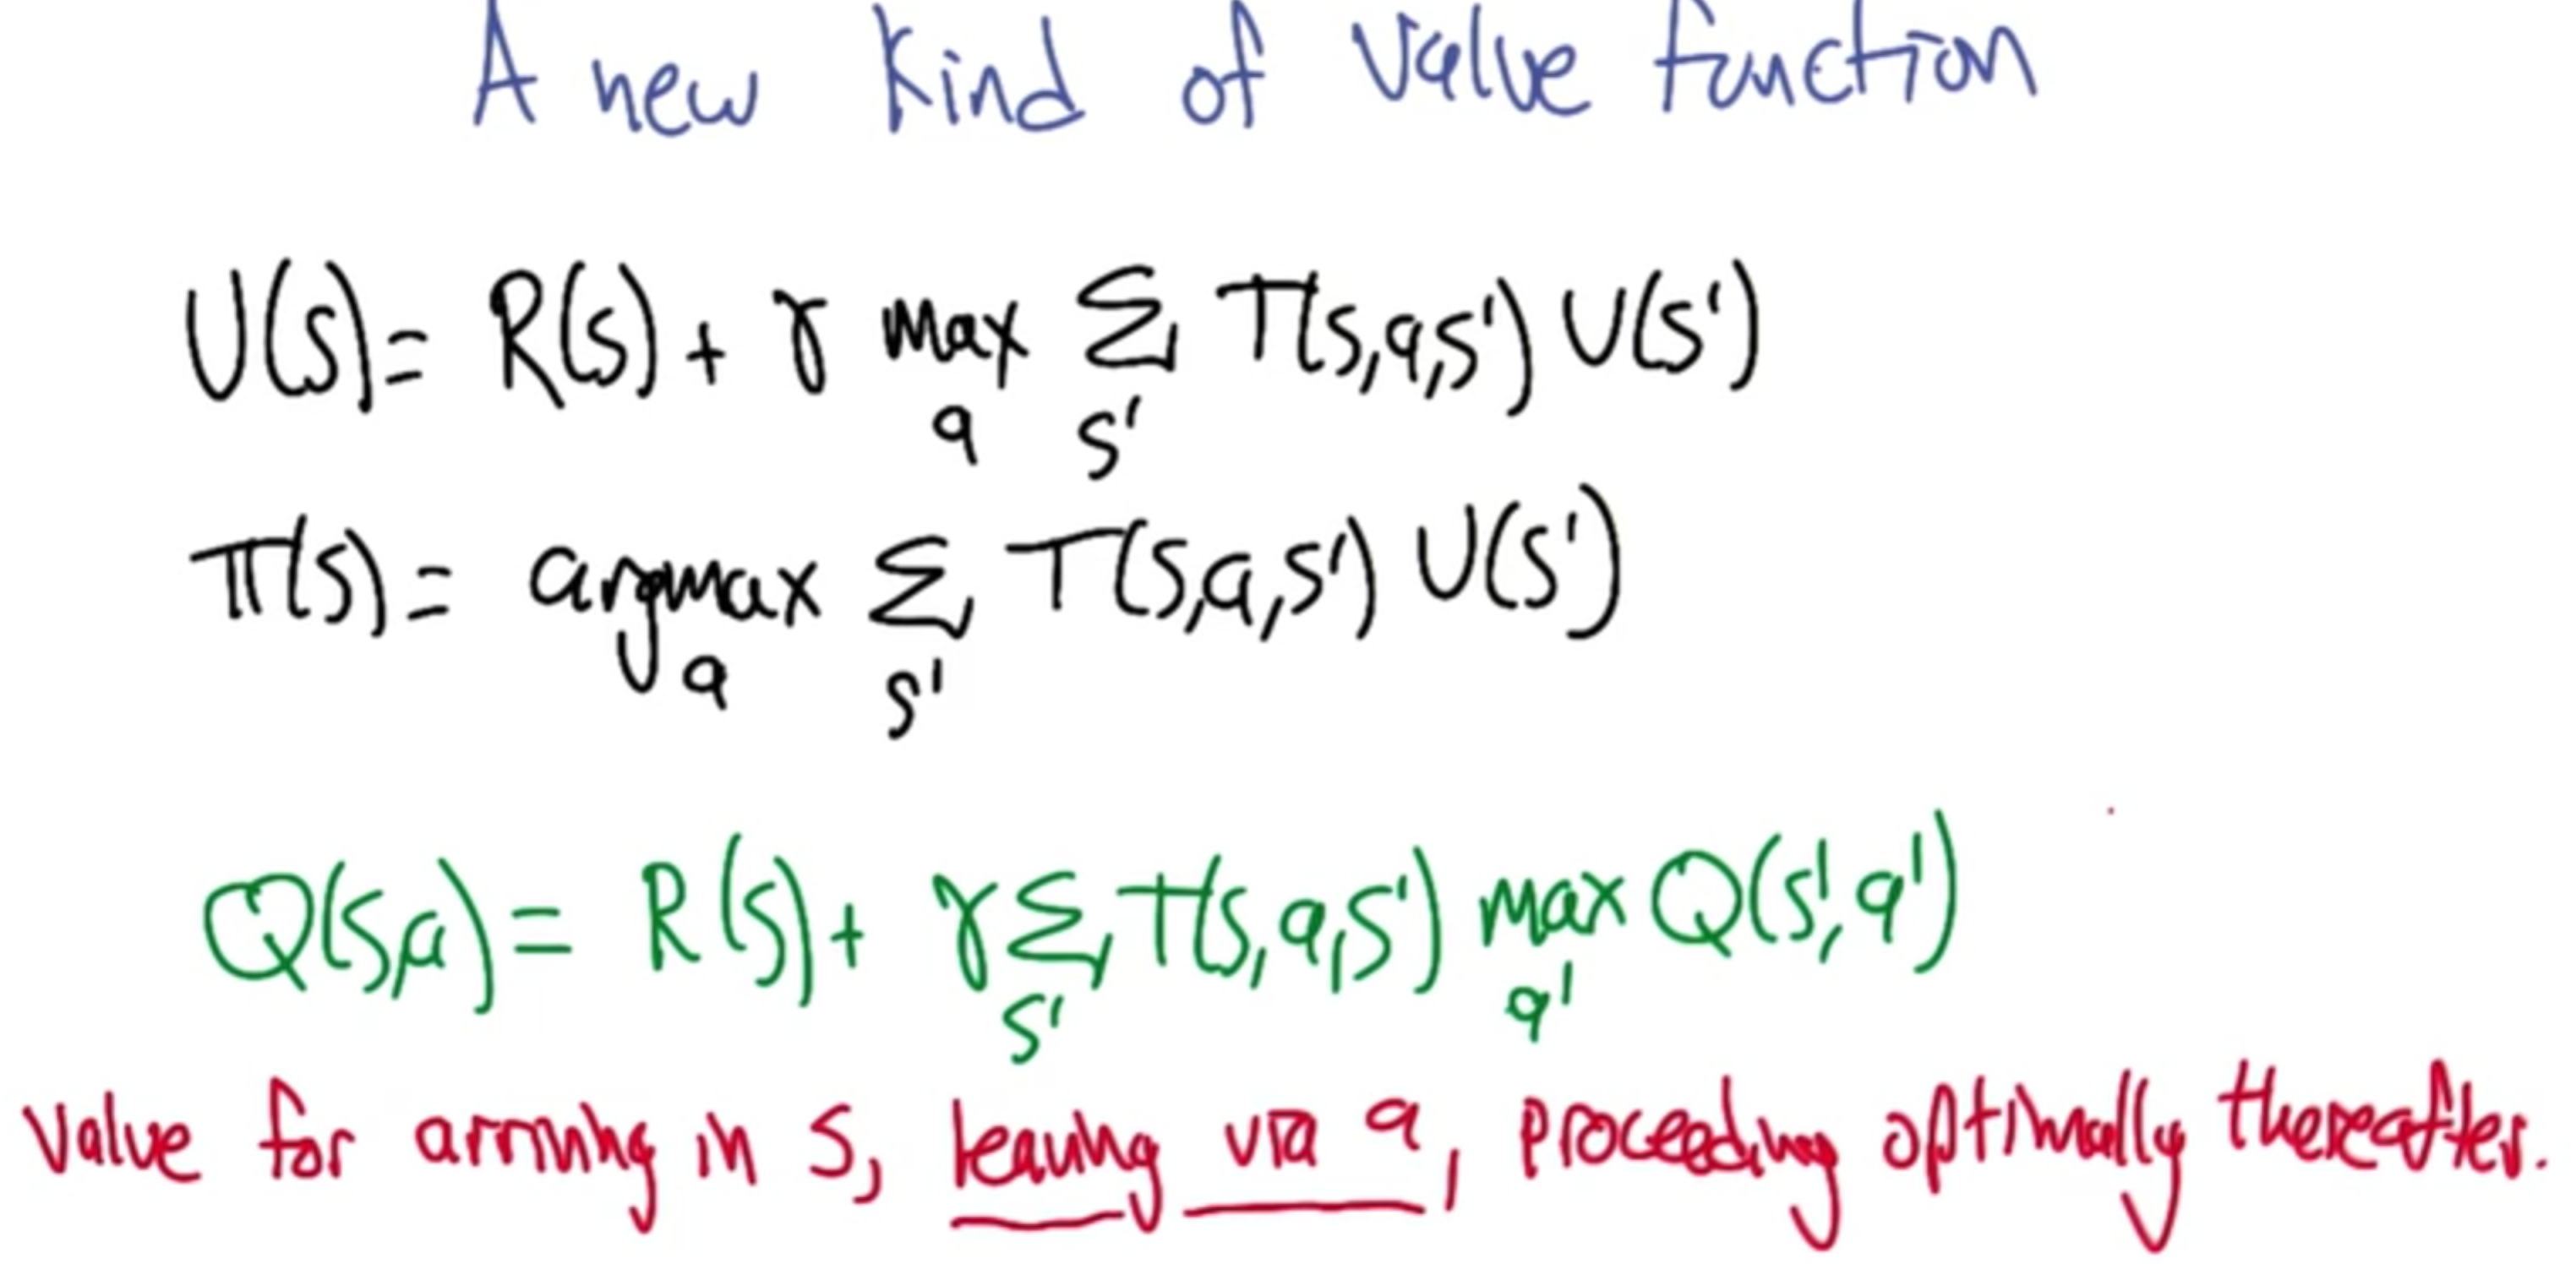 A new kind of value function
U(s) = R(s) + γ max Σ T(s,a,s') U(s')
a s'
π(s) = argmax Σ T(s,a,s') U(s')
a s'
Q(s,a) = R(s) + γ Σ T(s,a,s') max Q(s',a')
s' a'
value for arriving in s, leaving via a, proceeding optimally thereafter.